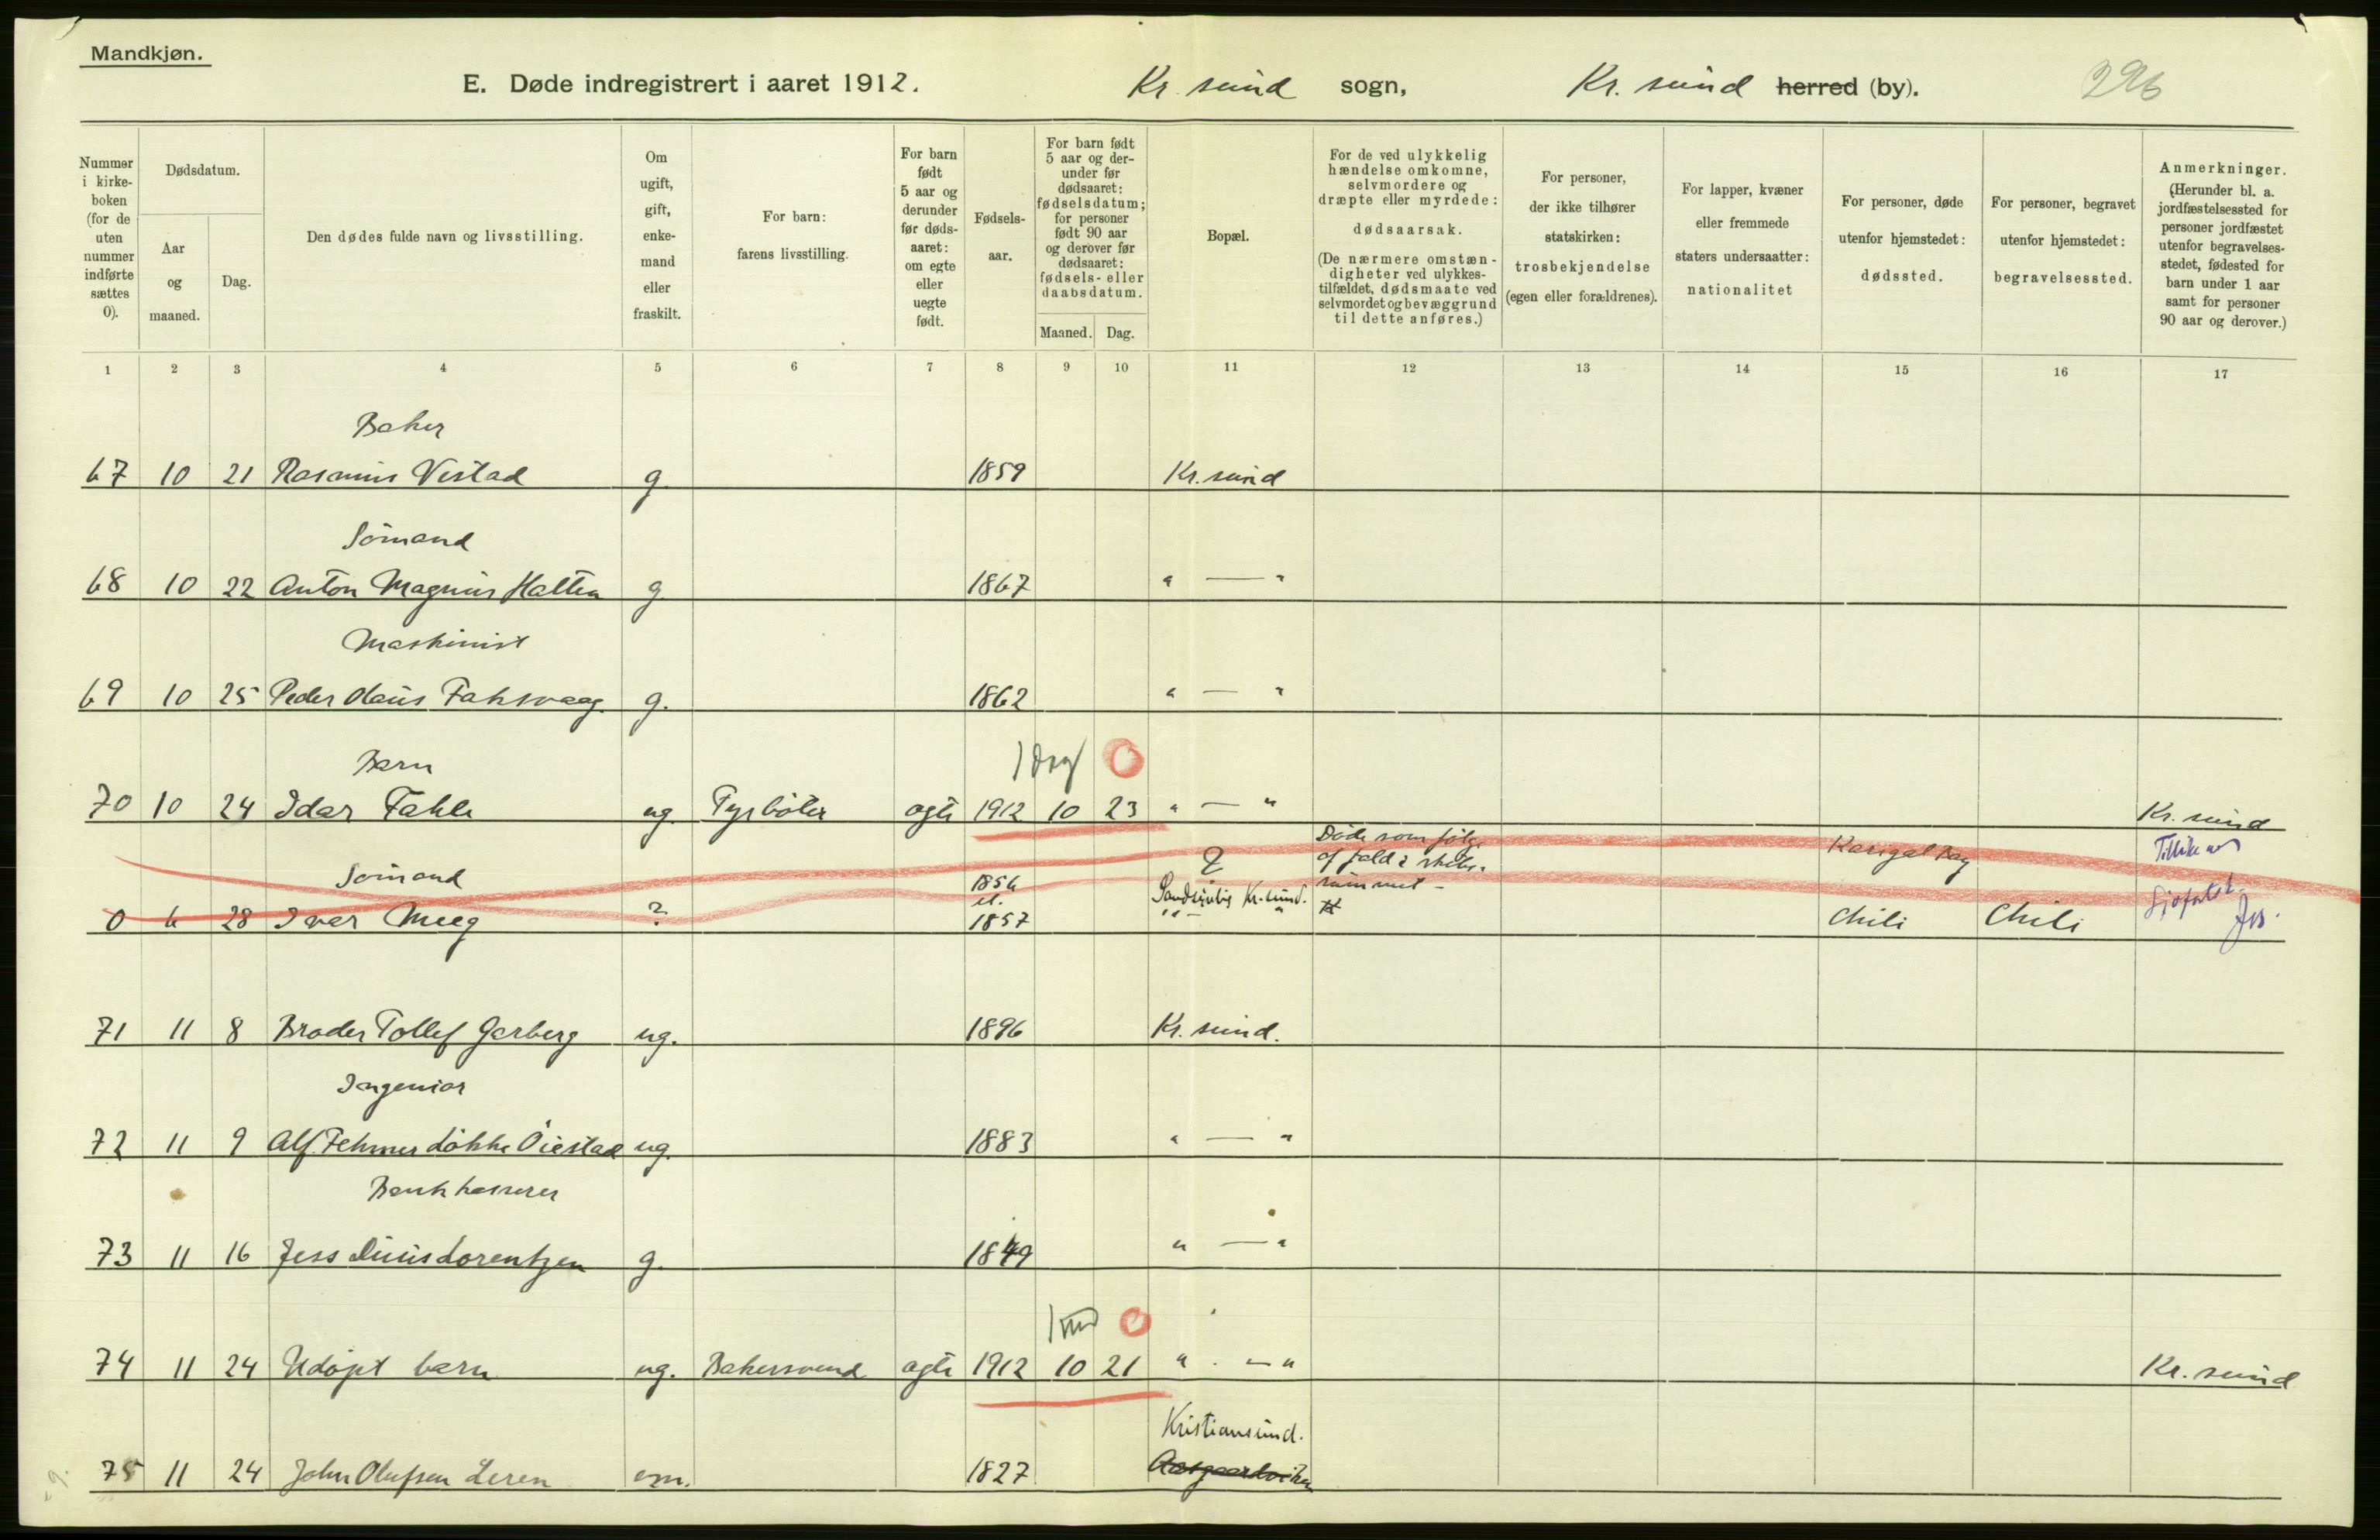 Mandkjøn.
E. Døde indregistrert i aaret 1912. Kr. sund sogn, Kr. sund herred (by). 296
Nummer i kirke-boken (for de uten nummer indførte sættes 0).
Dødsdatum.
Aar og maaned.
Dag.
Den dødes fulde navn og livsstilling.
Om ugift, gift, enke-mand eller fraskilt.
For barn: farens livsstilling.
For barn født 5 aar og derunder før døds-aaret: om egte eller uegte født.
Fødsels-aar.
For barn født 5 aar og der-under før dødsaaret: fødselsdatum; for personer født 90 aar og derover før dødsaaret: fødsels- eller daabsdatum.
Maaned. Dag.
Bopæl.
For de ved ulykkelig hændelse omkomne, selvmordere og dræpte eller myrdede: dødsaarsak.
(De nærmere omstæn-digheter ved ulykkes-tilfældet, dødsmaate ved selvmordet og bevæggrund til dette anføres.)
For personer, der ikke tilhører statskirken: trosbekjendelse (egen eller forældrenes).
For lapper, kvæner eller fremmede staters undersaatter: nationalitet
For personer, døde utenfor hjemstedet: dødssted.
For personer, begravet utenfor hjemstedet: begravelsessted.
Anmerkninger.
(Herunder bl. a. jordfæstelsessted for personer jordfæstet utenfor begravelses-stedet, fødested for barn under 1 aar samt for personer 90 aar og derover.)
1 2 3 4 5 6 7 8 9 10 11 12 13 14 15 16 17
Baker
67 10 21 Rasmus Vestad g 1859 Kr. sund
Sömand
68 10 22 Anton Magnus Halten g 1867 " — "
Maskinist
69 10 25 Peder Olaus Faksvaag g. 1862 " — "
Barn 1 dag 0
70 10 24 Idar Fahle ug. Fyrböter ægte 1912 10 23 " — " Kr. sund
Död som fölge
Sömand 1856 ? af fald i skibs- Bay
el. Kr. sund. rummet -
0 6 28 Iver Meeg ? 1857 " — " Chili Chili
71 11 8 Broder Tollef Garberg ug. 1896 Kr. sund.
Ingeniör
72 11 9 Alf Fehmer Lökke Öiestad ug. 1883 " — "
Bankkasserer
73 11 16 Jess Lorentzen g. 1849 " — "
1 md 0
74 11 24 Udöpt barn ug. Bakersvend ægte 1912 10 21 " — " Kr. sund
Kristiansund.
75 11 24 John Olufsen Leren em. 1827